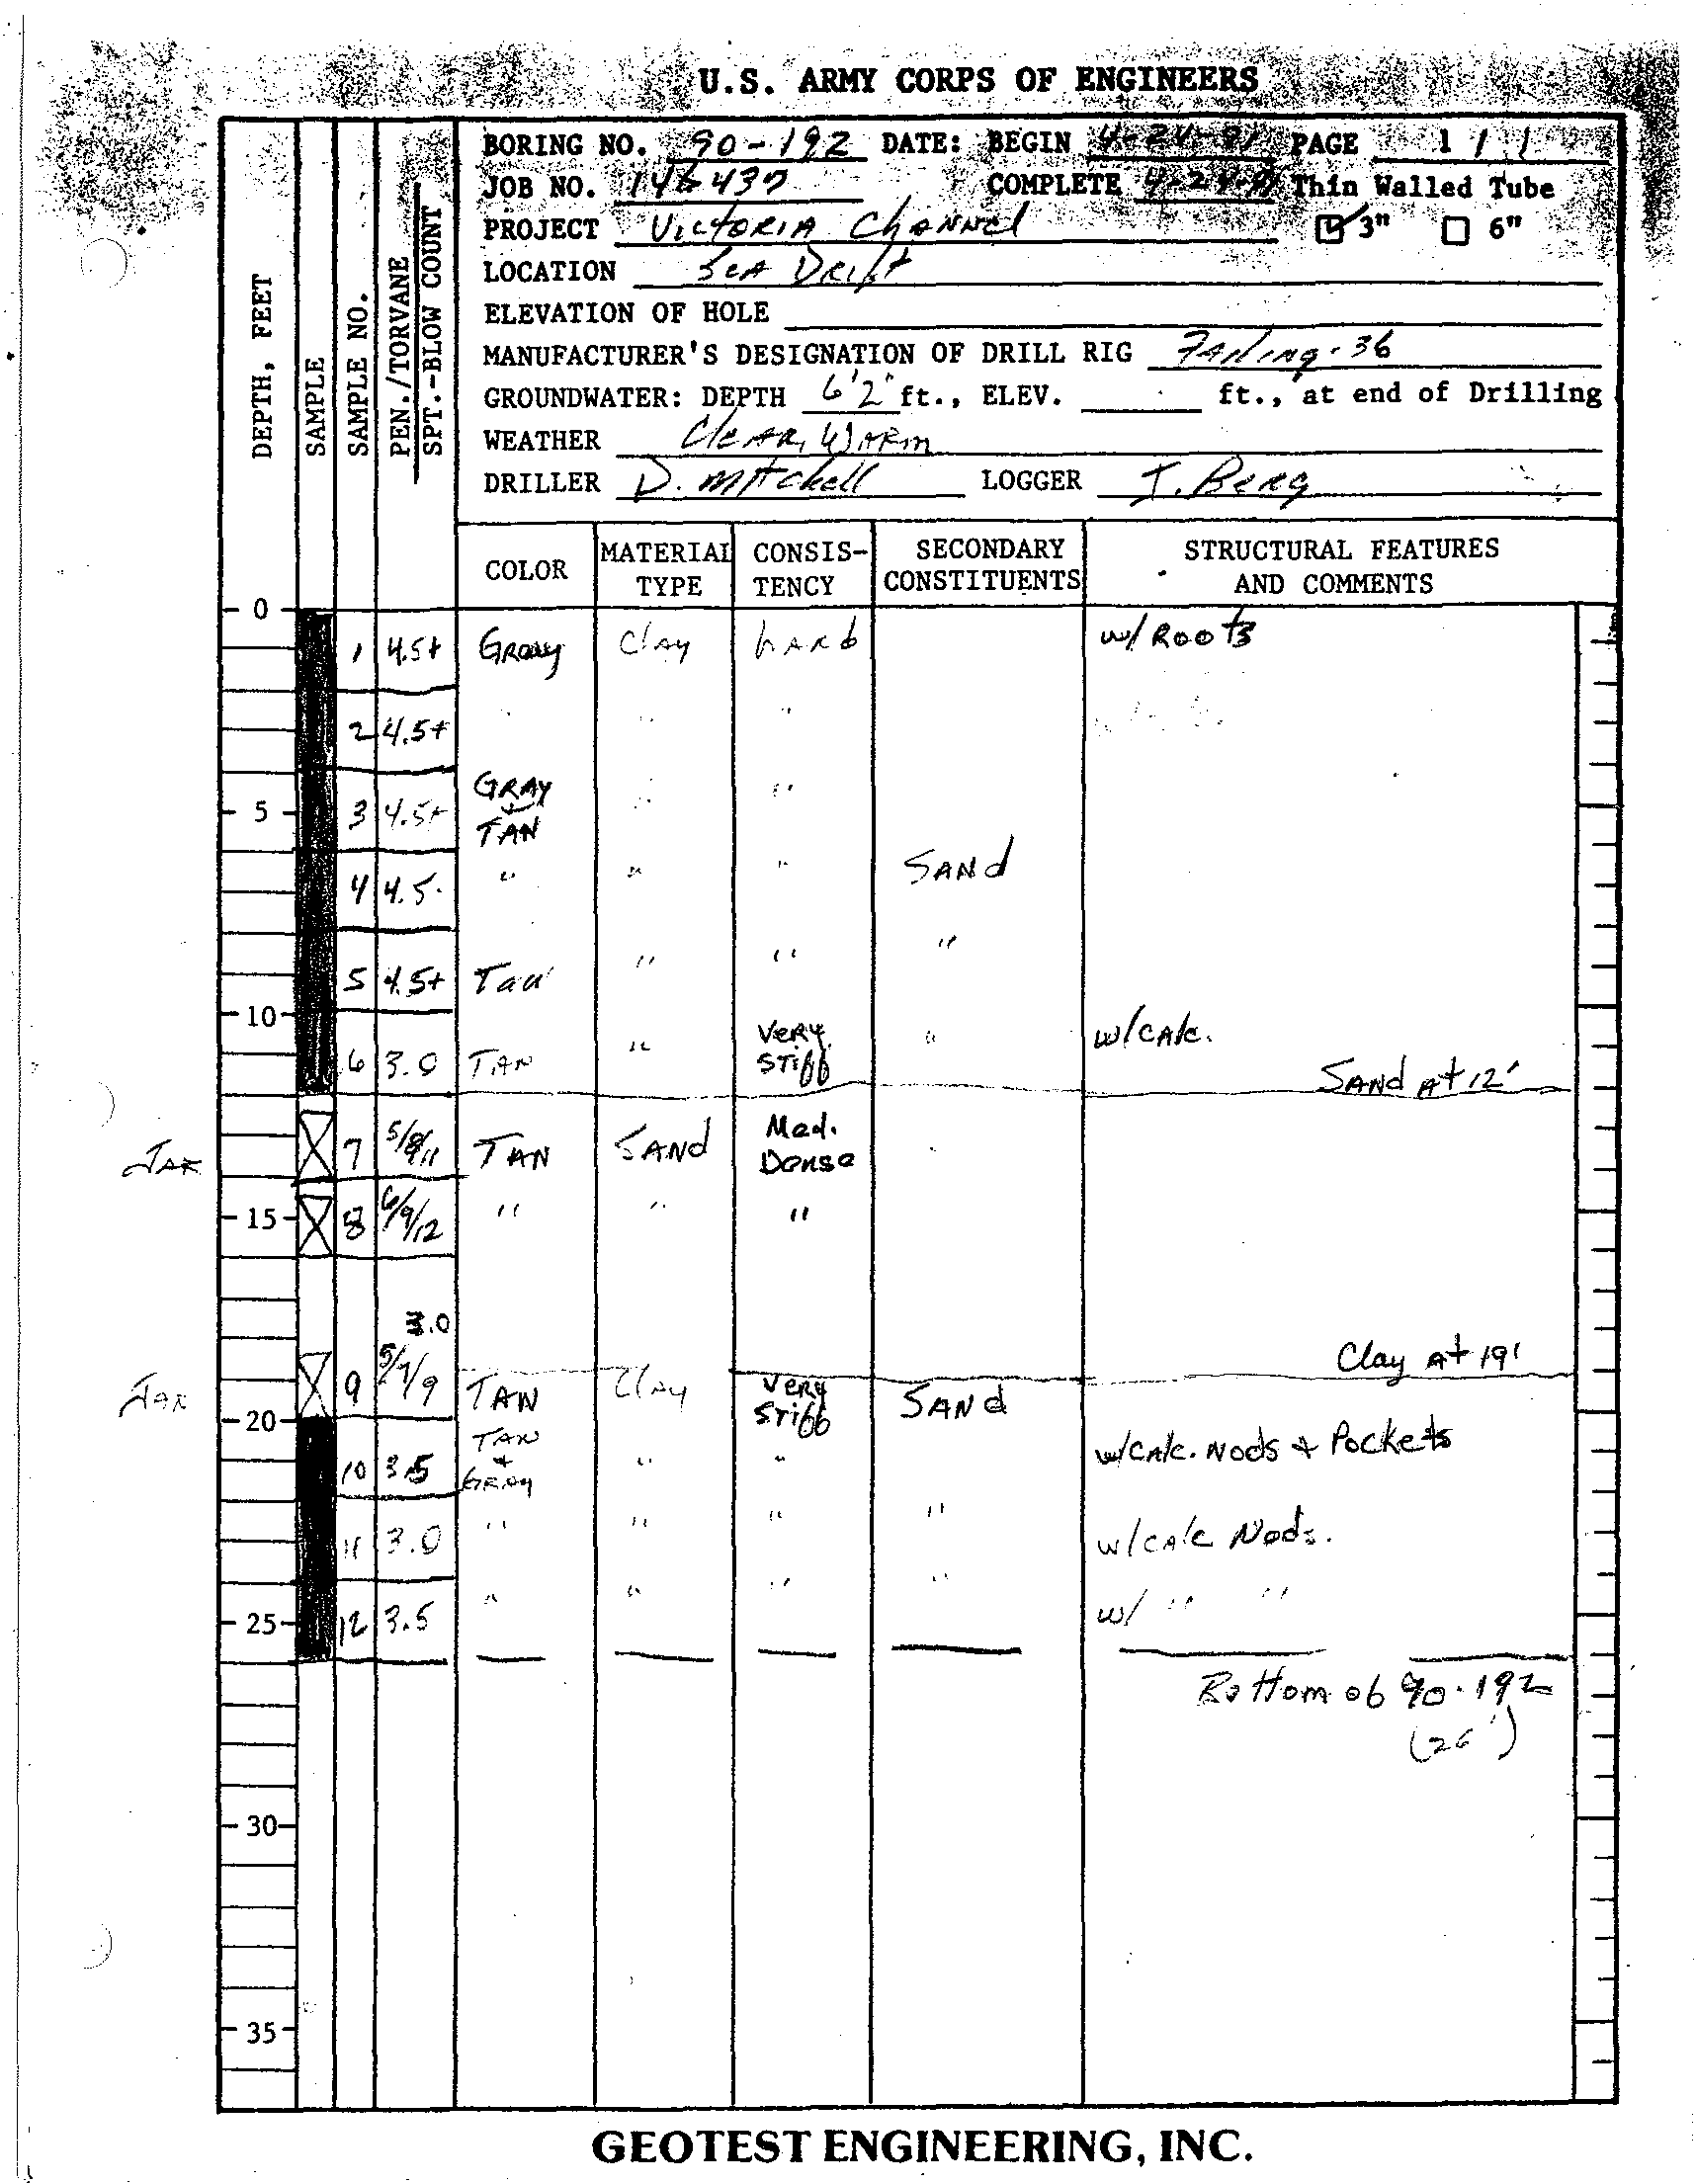 U.S. ARMY CORPS OF ENGINEERS
BORING NO. 90-192 DATE: BEGIN 4-24-91 PAGE 1 / 1
JOB NO. 146437 COMPLETE 4-24-91 Thin Walled Tube
PROJECT VICTORIA CHANNEL 3" 6"
LOCATION SEA DRIFT
ELEVATION OF HOLE
MANUFACTURER'S DESIGNATION OF DRILL RIG Failing-36
GROUNDWATER: DEPTH 6'2" ft., ELEV. ft., at end of Drilling
WEATHER CLEAR, WARM
DRILLER D. Mitchell LOGGER I. Berg
DEPTH, FEET
SAMPLE
SAMPLE NO.
PEN./TORVANE
SPT.-BLOW COUNT
COLOR MATERIAL TYPE CONSIS-TENCY SECONDARY CONSTITUENTS STRUCTURAL FEATURES AND COMMENTS
0
1 4.5+ Gray Clay hard w/ Roots
2 4.5+ " "
5 3 4.5+ GRAY + TAN " "
4 4.5 " " " SAND
5 4.5+ Tan " " "
10
6 3.0 TAN " Very Stiff " w/calc.
Sand At 12'
JAR 7 5/8/11 TAN SAND Med. Dense
15 8 6/9/12 " " "
3.0
Clay At 19'
JAR 9 5/7/9 TAN Clay Very Stiff SAND
20
10 3.5 TAN + GRAY " " w/calc. Nods + Pockets
11 3.0 " " " " w/calc Nods.
25 12 3.5 " " " " w/ " "
Bottom of 90-192
(26')
30
35
GEOTEST ENGINEERING, INC.